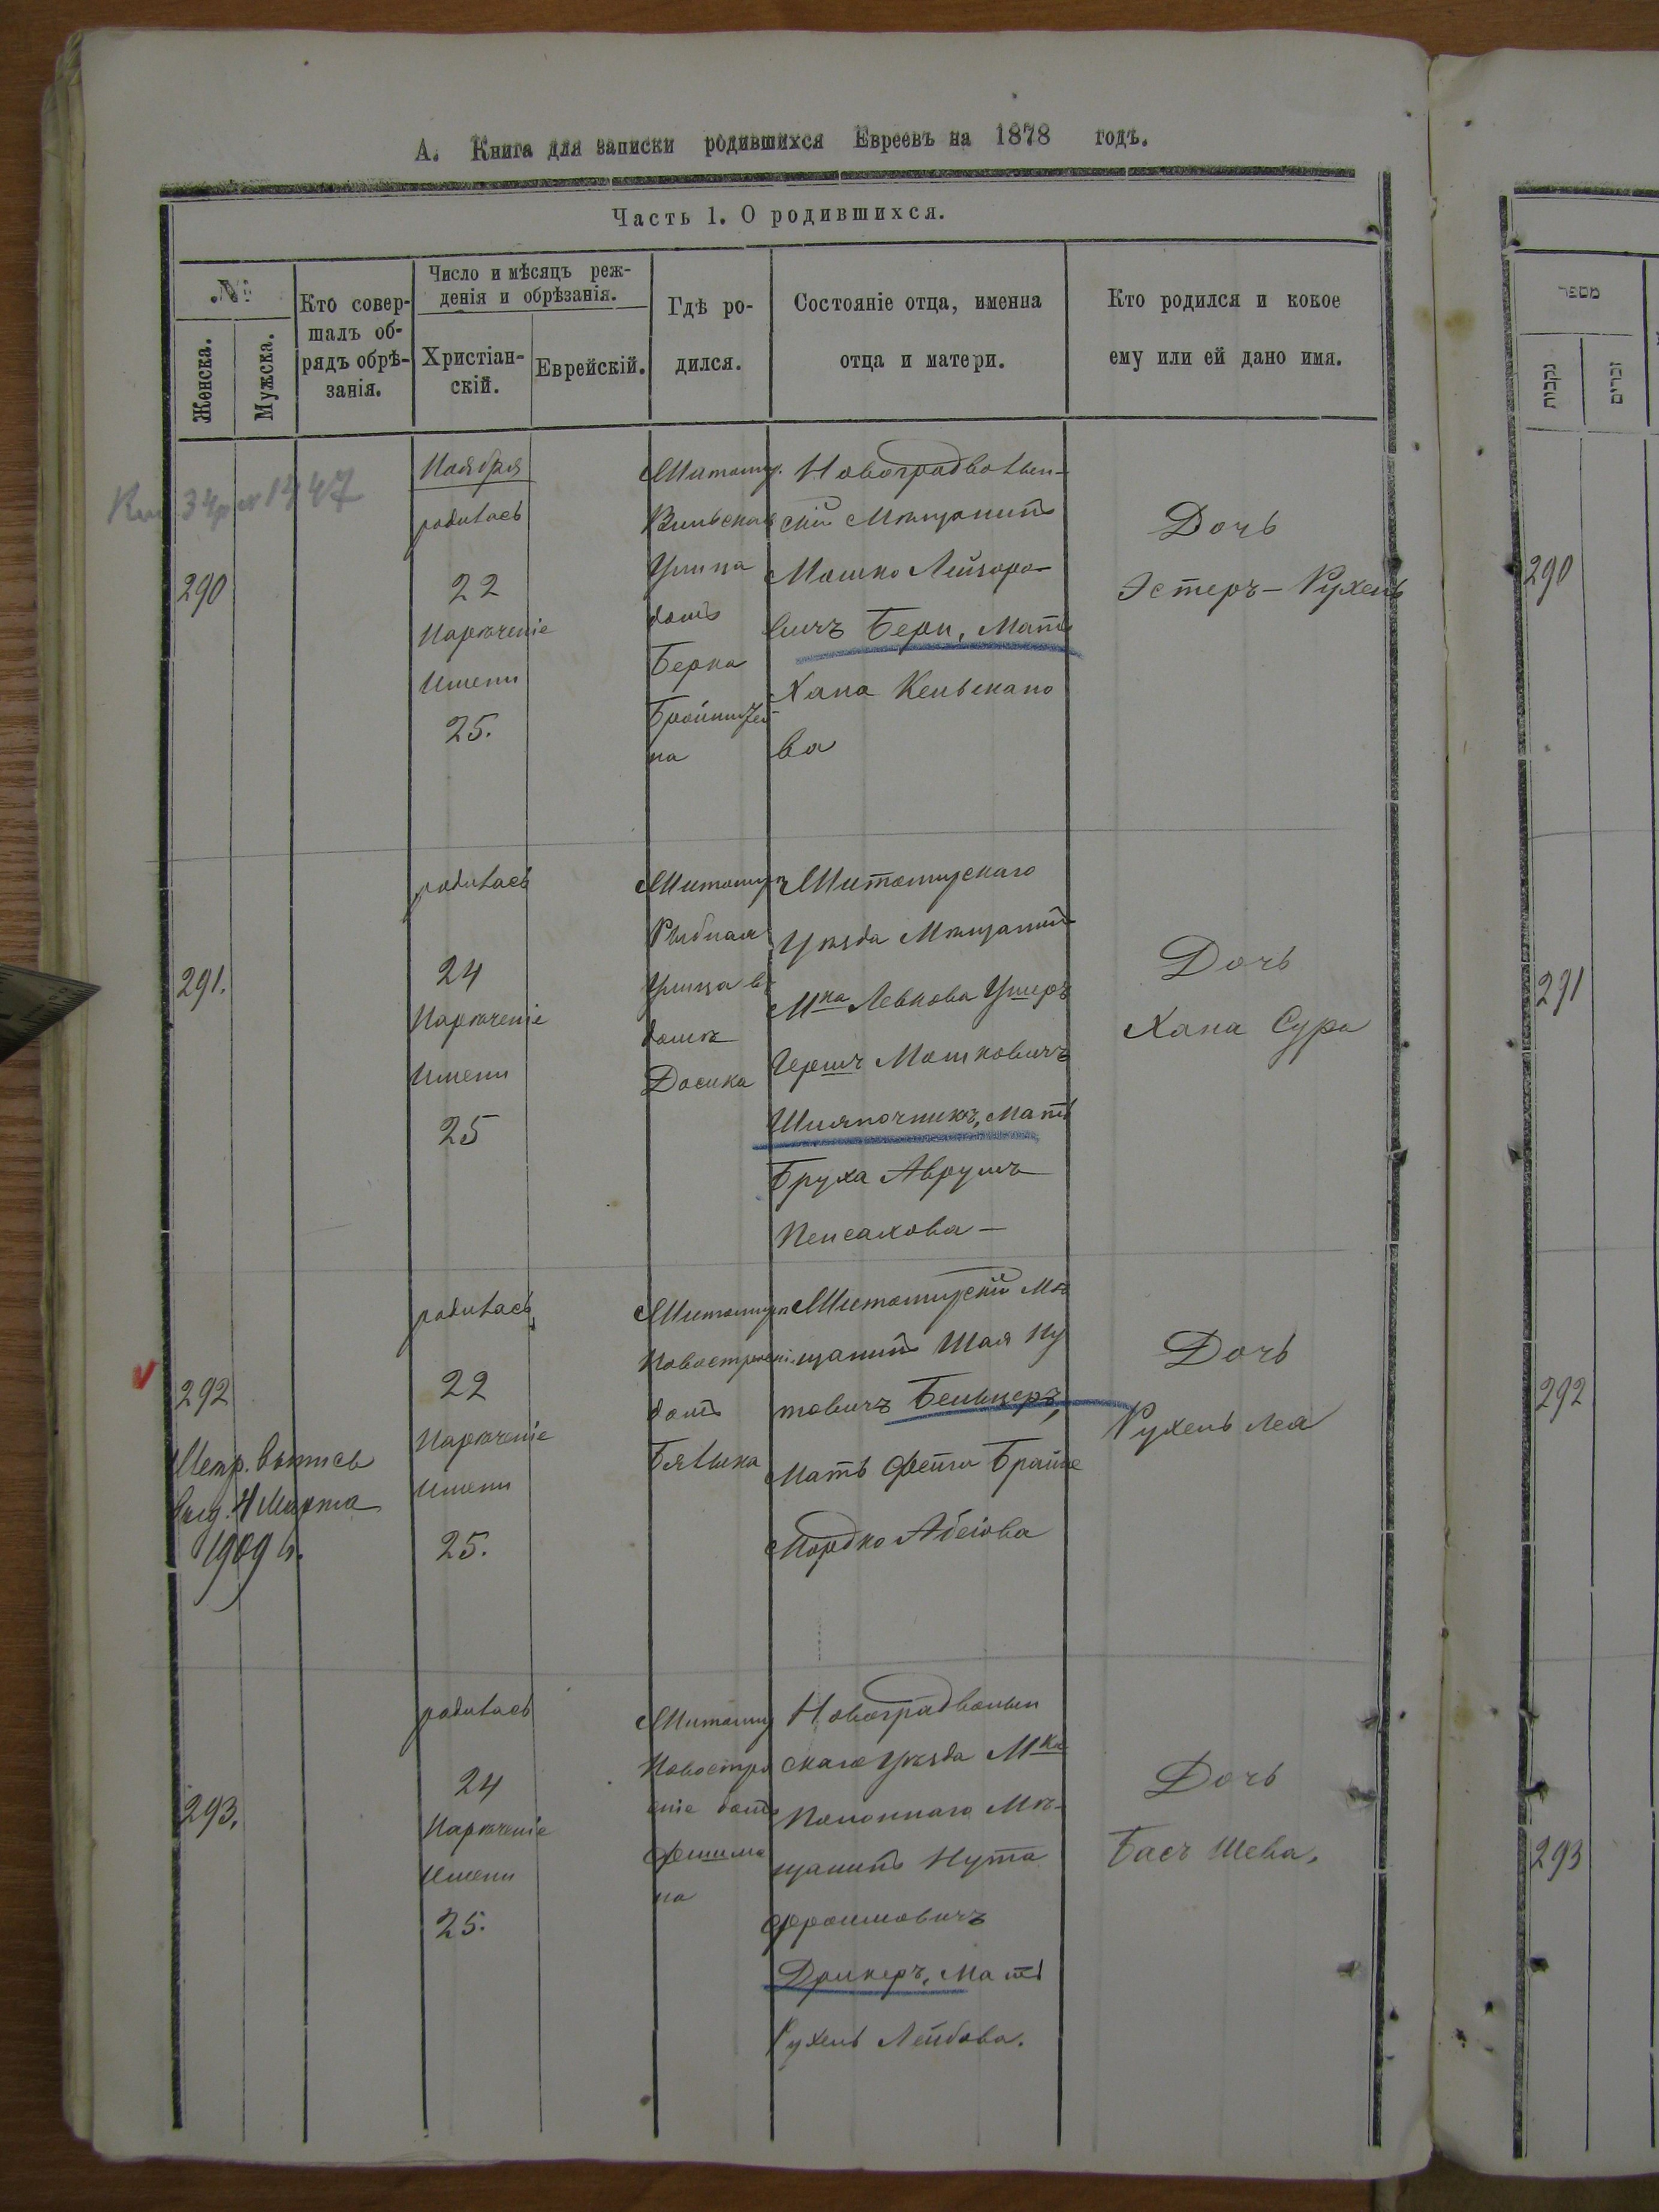 А. Книга для записки родившихся Евреевъ на 1878 годъ.
Часть 1. О родившихся.
№
Женска.
Мужска.
Кто совер-
шалъ об-
рядъ обрѣ-
занія.
Число и мѣсяцъ реж-
денія и обрѣзанія.
Христіан-
скій.
Еврейскій.
Гдѣ ро-
дился.
Состояніе отца, именна
отца и матери.
Кто родился и кокое
ему или ей дано имя.
290
Ноября
родилась
22
Нареченіе
Имени
25.
Житомир.
Вильская
Улица
домъ
Берка
на
Новоградволын-
скій Мѣщанинъ
Мошко Лейзоро-
вичъ Бери, Мать
Хана Кельманo
ва
Дочь
Эстеръ-Рухель
291.
родилась
24
Нареченіе
Имени
25
Житомиръ
Рыбная
Улица въ
домѣ
Досика
Житомирскаго
Уѣзда Мѣщанинъ
Мка Левкова Ушеръ
Гершъ Мошковичъ
Шляпочникъ, Мать
Бруха Аврумъ
Пейсахова-
Дочь
Хана Сура
292
Метр. выпись
выд. 4 Марта
1909 г.
родилась
22
Нареченіе
Имени
25.
Житомиръ
домъ
Бялика
Житомирскій Мѣ
щанинъ Шая Ну
товичъ Бельцеръ,
Мать Фейга Брайне
Мордко Абеіова
Дочь
Рухель Леа
293.
родилась
24
Нареченіе
Имени
25.
Житомир
Новостро
еніе домъ
Фишма
на
Новоградволын
скаго Уѣзда Мка
Полоннаго Мѣ-
щанинъ Нута
Фроимовичъ
Дрикеръ, Мать
Рухель Лейбова.
Дочь
Басъ Шева.
מספר
נקבות
זכרים
290
291
292
293